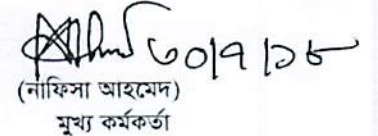 ৩০/৭/১৮
(নাফিসা আহমেদ)
মুখ্য কর্মকর্তা